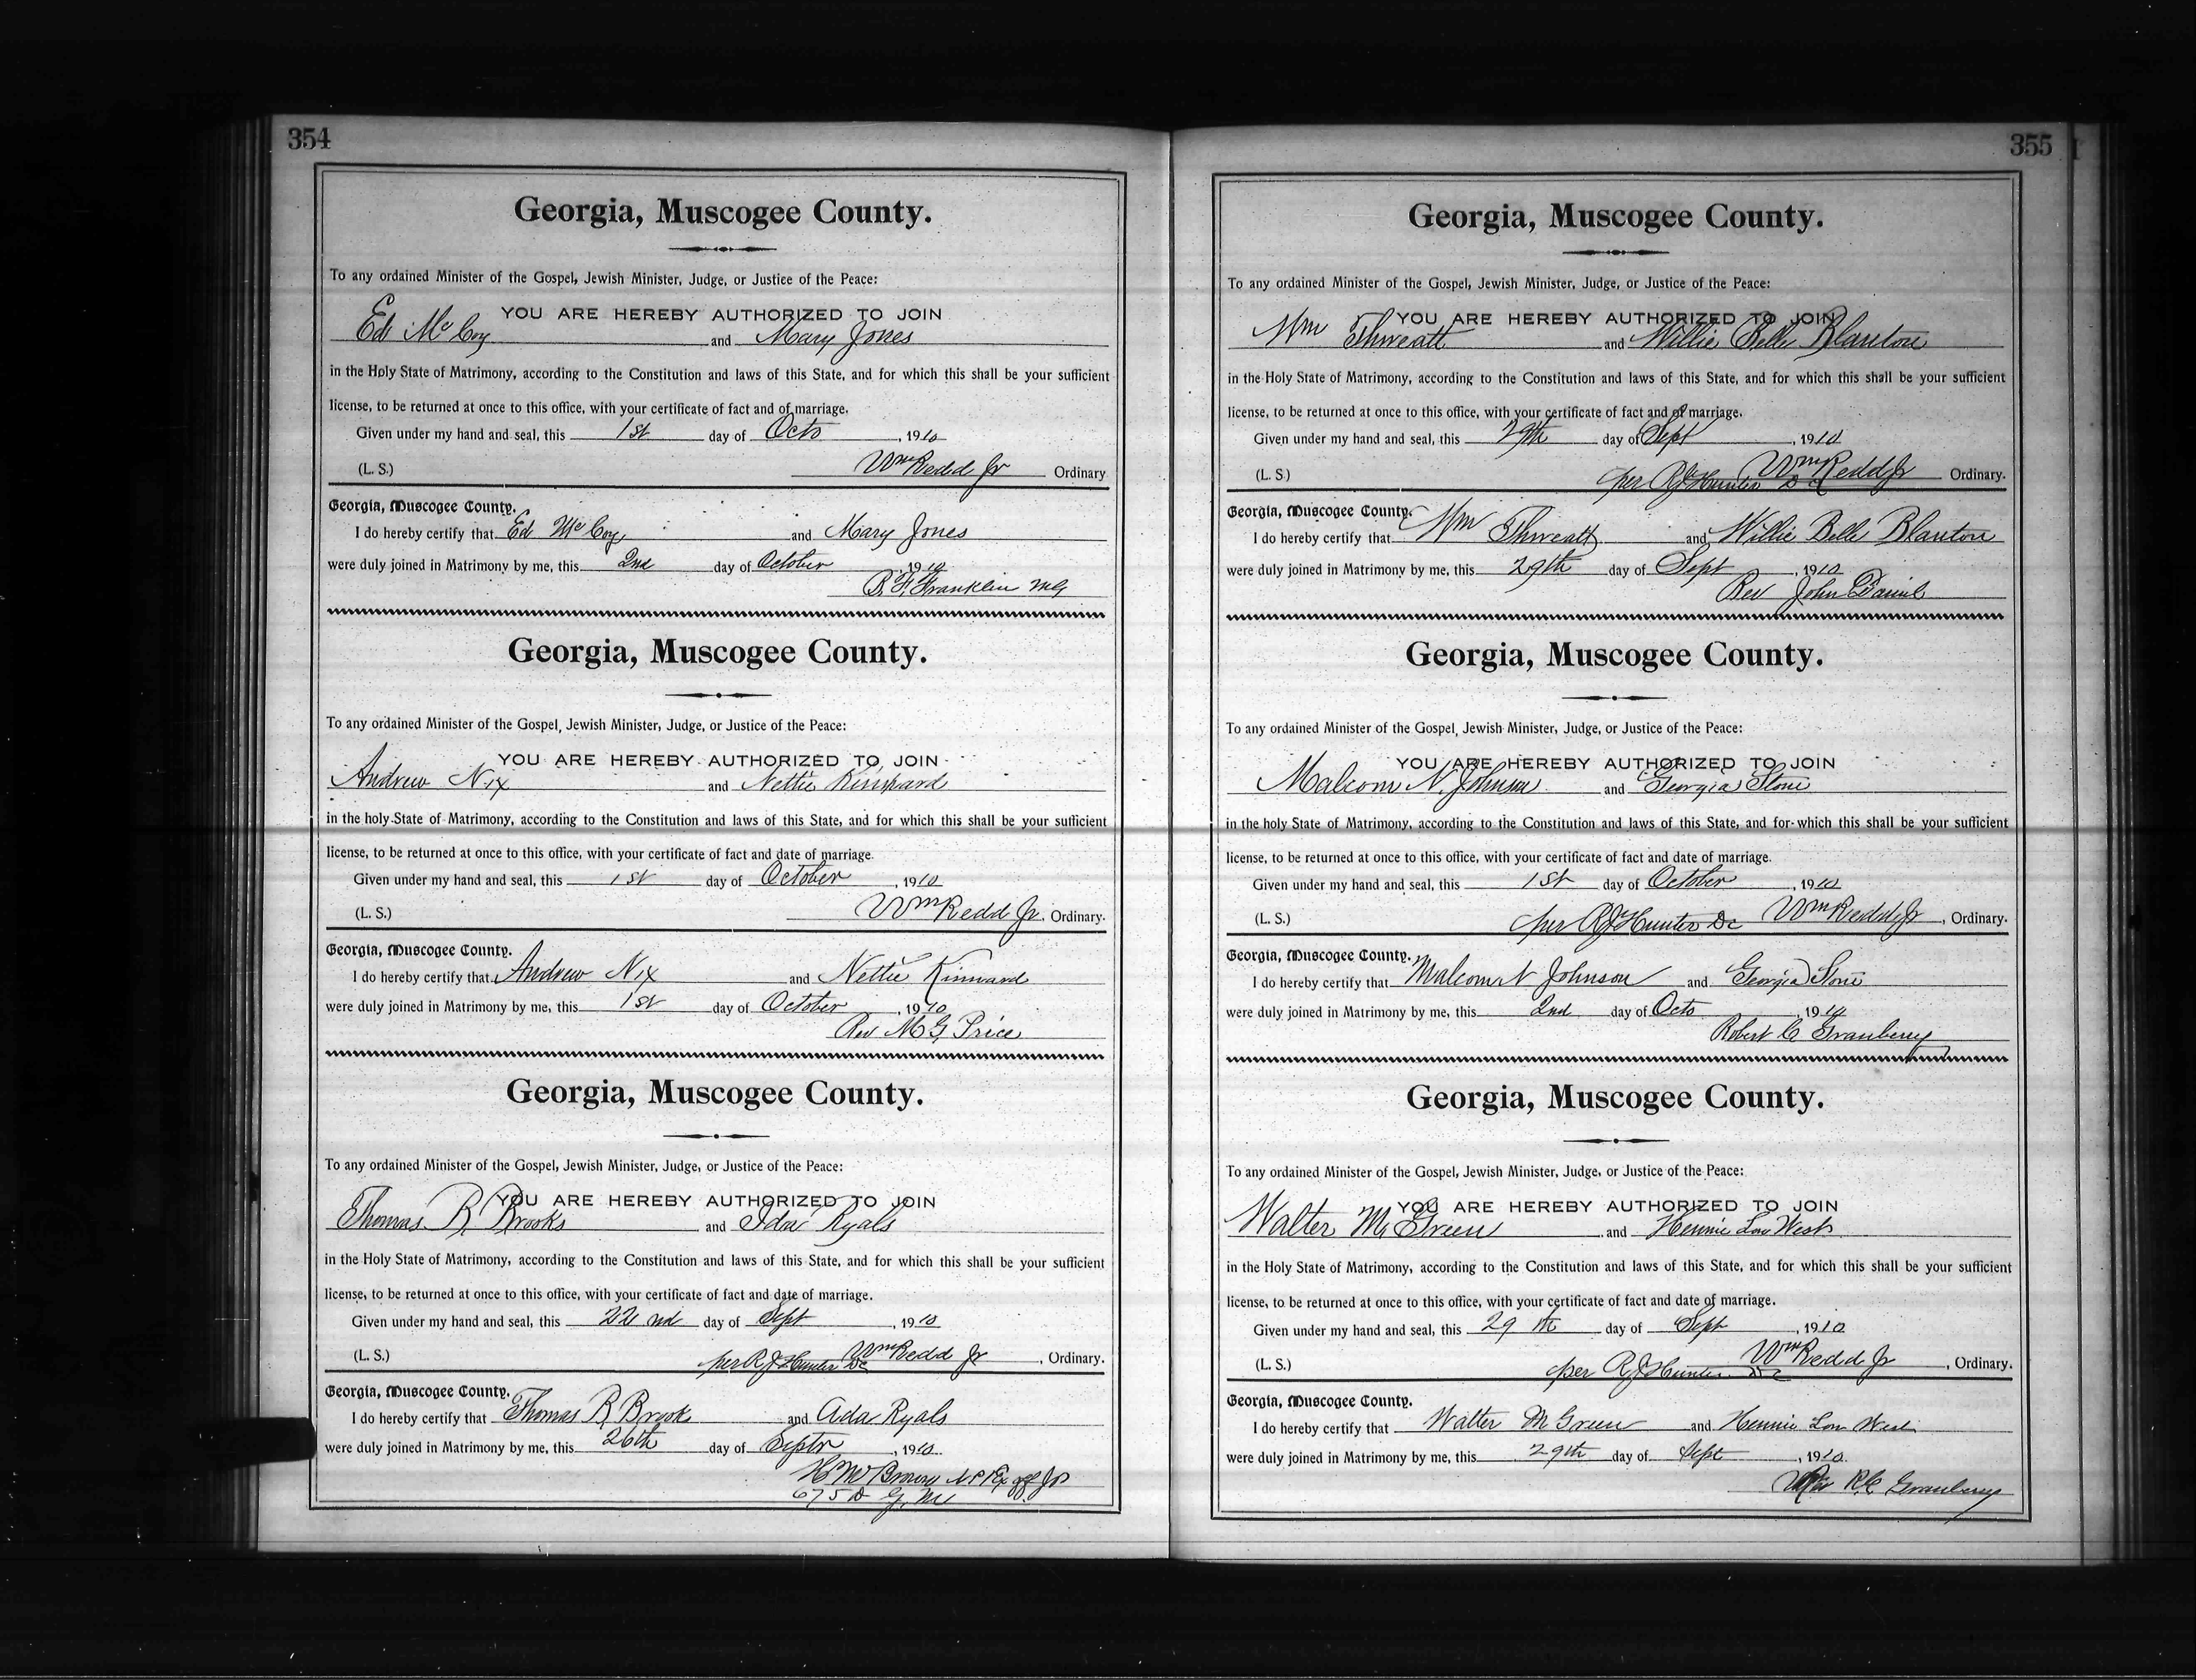 354
Georgia, Muscogee County.
To any ordained Minister of the Gospel, Jewish Minister, Judge, or Justice of the Peace:
YOU ARE HEREBY AUTHORIZED TO JOIN
Ed McCoy and Mary Jones
in the Holy State of Matrimony, according to the Constitution and laws of this State, and for which this shall be your sufficient
license, to be returned at once to this office, with your certificate of fact and of marriage.
Given under my hand and seal, this 1st day of Octo, 1910
(L. S.) Wm Redd Jr Ordinary
Georgia, Muscogee County.
I do hereby certify that Ed McCoy and Mary Jones
were duly joined in Matrimony by me, this 2nd day of October, 1910
B. F. Franklin MG
Georgia, Muscogee County.
To any ordained Minister of the Gospel, Jewish Minister, Judge, or Justice of the Peace:
YOU ARE HEREBY AUTHORIZED TO JOIN
Andrew Nix and Nettie Kinnard
in the holy State of Matrimony, according to the Constitution and laws of this State, and for which this shall be your sufficient
license, to be returned at once to this office, with your certificate of fact and date of marriage.
Given under my hand and seal, this 1st day of October, 1910
(L. S.) Wm Redd Jr. Ordinary.
Georgia, Muscogee County.
I do hereby certify that Andrew Nix and Nettie Kinnard
were duly joined in Matrimony by me, this 1st day of October, 1910
Rev M. G. Price
Georgia, Muscogee County.
To any ordained Minister of the Gospel, Jewish Minister, Judge, or Justice of the Peace:
YOU ARE HEREBY AUTHORIZED TO JOIN
Thomas R. Brooks and Ida Ryals
in the Holy State of Matrimony, according to the Constitution and laws of this State, and for which this shall be your sufficient
license, to be returned at once to this office, with your certificate of fact and date of marriage.
Given under my hand and seal, this 22nd day of Sept, 1910
(L. S.) per R J Hunter DC Wm Redd Jr, Ordinary.
Georgia, Muscogee County.
I do hereby certify that Thomas R Brook and Ada Ryals
were duly joined in Matrimony by me, this 26th day of Septr, 1910
N P Ex off JP
675 D G M
355
Georgia, Muscogee County.
To any ordained Minister of the Gospel, Jewish Minister, Judge, or Justice of the Peace:
YOU ARE HEREBY AUTHORIZED TO JOIN
Wm Threatt and Willie Belle Blanton
in the Holy State of Matrimony, according to the Constitution and laws of this State, and for which this shall be your sufficient
license, to be returned at once to this office, with your certificate of fact and of marriage.
Given under my hand and seal, this 29th day of Sept, 1910
(L. S.) per R J Hunter DC Wm Redd Jr Ordinary.
Georgia, Muscogee County.
I do hereby certify that Wm Threatt and Willie Belle Blanton
were duly joined in Matrimony by me, this 29th day of Sept, 1910
Rev John Daniel
Georgia, Muscogee County.
To any ordained Minister of the Gospel, Jewish Minister, Judge, or Justice of the Peace:
YOU ARE HEREBY AUTHORIZED TO JOIN
Malcom N. Johnson and Georgia Stone
in the holy State of Matrimony, according to the Constitution and laws of this State, and for which this shall be your sufficient
license, to be returned at once to this office, with your certificate of fact and date of marriage.
Given under my hand and seal, this 1st day of October, 1910
(L. S.) per R J Hunter DC Wm Redd Jr, Ordinary.
Georgia, Muscogee County.
I do hereby certify that Malcom N Johnson and Georgia Stone
were duly joined in Matrimony by me, this 2nd day of Octo, 1910
Robert C Granberry
Georgia, Muscogee County.
To any ordained Minister of the Gospel, Jewish Minister, Judge, or Justice of the Peace:
YOU ARE HEREBY AUTHORIZED TO JOIN
Walter M. Green and Hennie Lou West
in the Holy State of Matrimony, according to the Constitution and laws of this State, and for which this shall be your sufficient
license, to be returned at once to this office, with your certificate of fact and date of marriage.
Given under my hand and seal, this 29th day of Sept, 1910
(L. S.) per R J Hunter DC Wm Redd Jr, Ordinary.
Georgia, Muscogee County.
I do hereby certify that Walter M Green and Hennie Lou West
were duly joined in Matrimony by me, this 29th day of Sept, 1910
R. C. Granberry